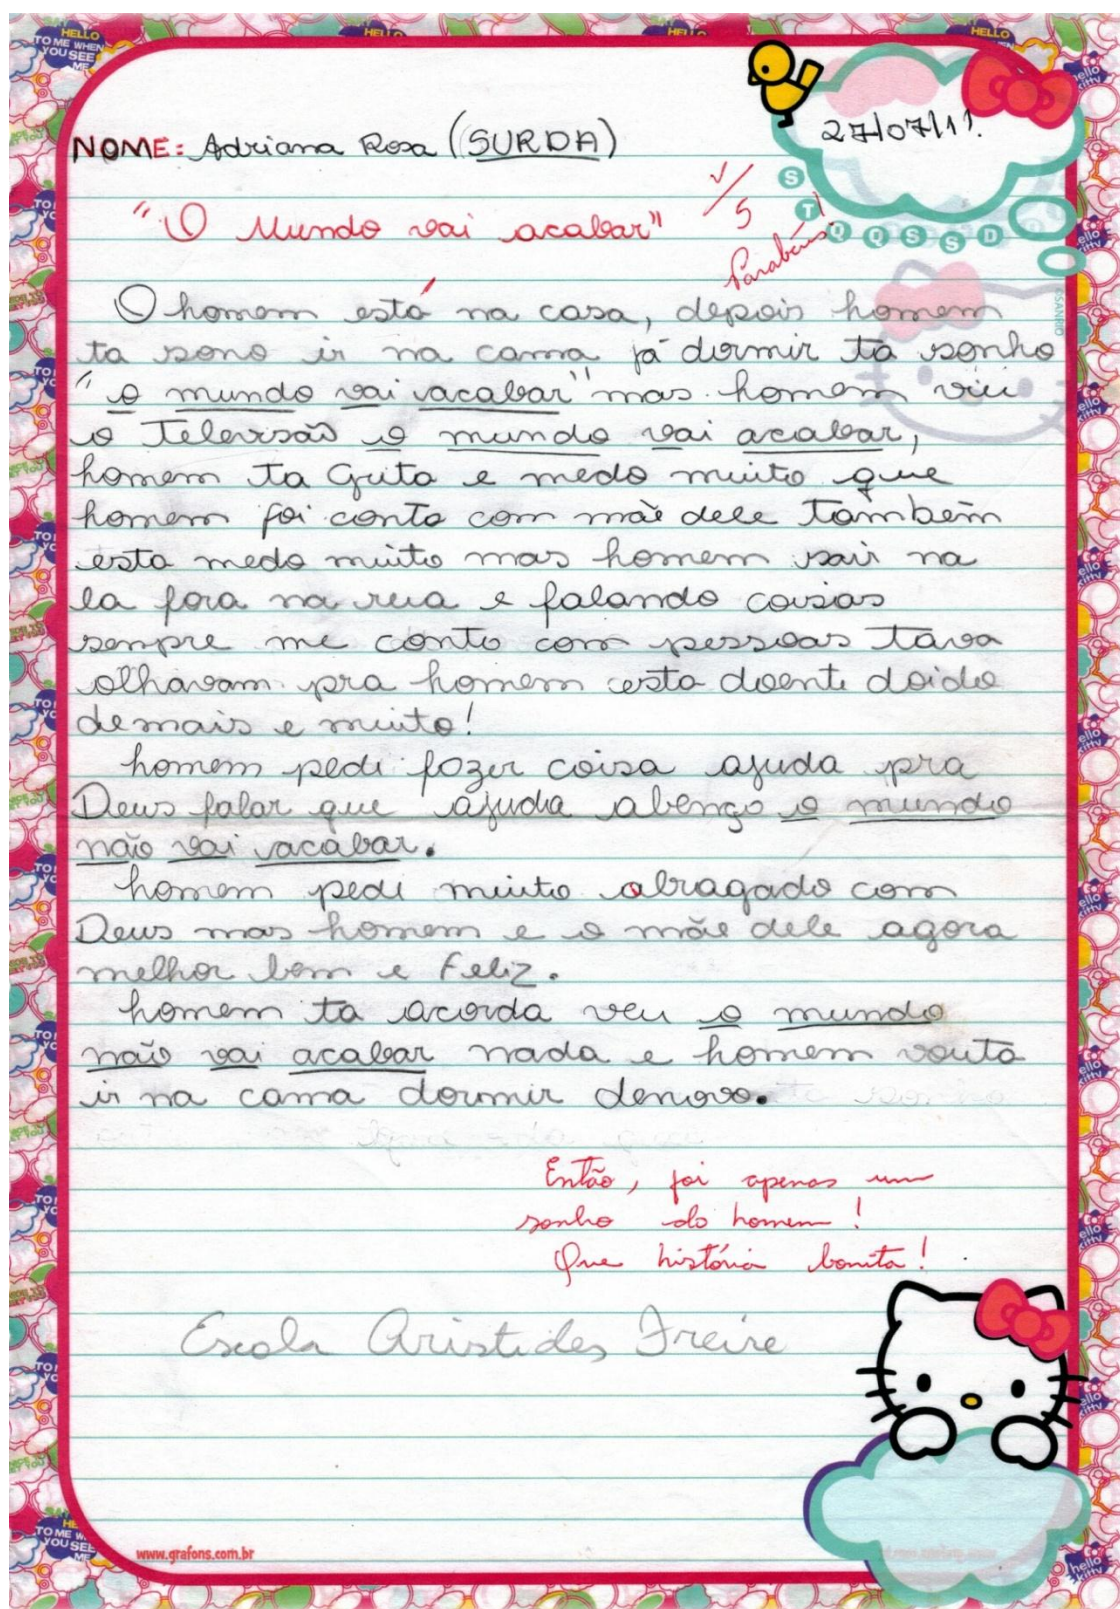 27/07/11.
NOME: Adriana Rosa (SURDA)
S T Q Q S S D
5
Parabéns!
"O Mundo vai acabar"
O homem está na casa, depois homem
ta sono ir na cama já dormir ta sonho
"o mundo vai acabar" mas homem viu
o Televisão o mundo vai acabar,
homem ta Grita e medo muito que
homem foi conto com mãe dele também
esta medo muito mas homem sair na
la fora na rua e falando coisas
senpre me conto com pessoas tava
olhavam pra homem esta doente doido
demais e muito!
homem pedi fazer coisa ajuda pra
Deus falar que ajuda abenço o mundo
não vai acabar.
homem pedi muito obragado com
Deus mas homem e o mãe dele agora
melhor bom e Feliz.
homem ta acorda veu o mundo
não vai acabar nada e homem vouta
ir na cama dormir denovo.
Então, foi apenas um
sonho do homem!
Que história bonita!
Escola Aristides Freire
www.grafons.com.br
©SANRIO
HELLO
TO ME WHEN
YOU SEE
ME
hello
kitty